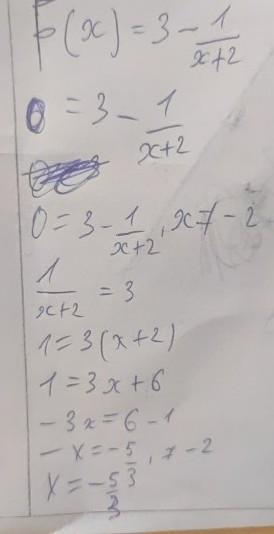 F(x) = 3 - 1/(x+2)
0 = 3 - 1/(x+2)
0 = 3 - 1/(x+2), x ≠ -2
1/(x+2) = 3
1 = 3(x+2)
1 = 3x + 6
-3x = 6 - 1
-x = -5/3, ≠ -2
x = -5/3